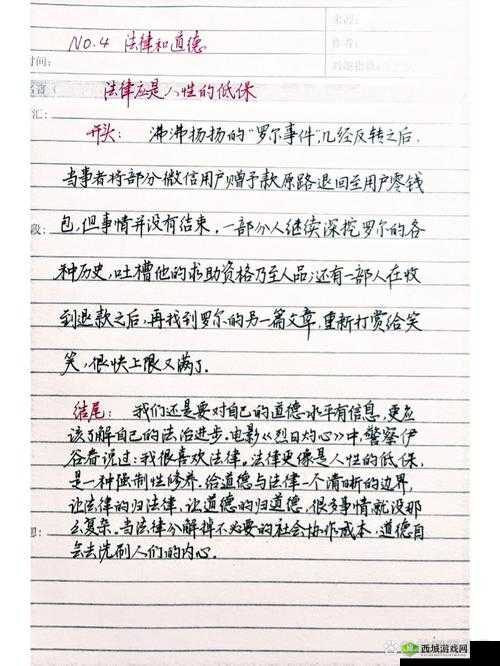 来源:
NO.4 法律和道德
作者:
时间:
法律应是人性的低保
汇:
开头: 沸沸扬扬的“罗尔事件”,几经反转之后,
当事者将部分微信用户赠予款原路退回至用户零钱
段:
包,但事情并没有结束,一部分人继续深挖罗尔的各
种历史,吐槽他的求助资格乃至人品;还有一部人在收
到退款之后,再找到罗尔的另一篇文章,重新打赏给笑
笑,很快上限又满了.
结尾: 我们还是要对自己的道德水平有信息,更应
该了解自己的法治进步.电影《烈日灼心》中,警察伊
谷春说过:我很喜欢法律.法律更像是人性的低保,
是一种强制性修养,给道德与法律一个清晰的边界,
让法律的归法律,让道德的归道德,很多事情就没那
么复杂.当法律分解掉不必要的社会协作成本,道德自
会去洗刷人们的内心.
西城游戏网